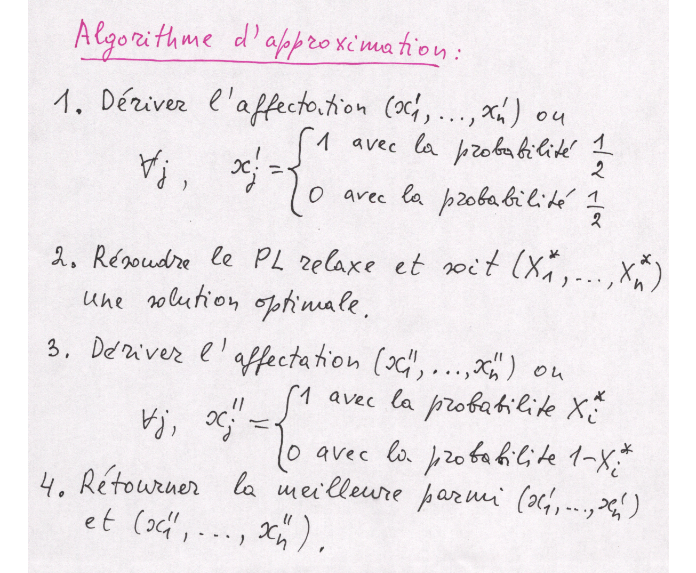 Algorithme d'approximation :
1. Dériver l'affectation (x'₁, ..., x'ₙ) ou
∀j, x'ⱼ = { 1 avec la probabilité 1/2
0 avec la probabilité 1/2
2. Résoudre le PL relaxe et soit (X₁*, ..., Xₙ*)
une solution optimale.
3. Dériver l'affectation (x''₁, ..., x''ₙ) ou
∀j, x''ⱼ = { 1 avec la probabilite Xᵢ*
0 avec la probabilite 1-Xᵢ*
4. Rétourner la meilleure parmi (x'₁, ..., x'ₙ)
et (x''₁, ..., x''ₙ).